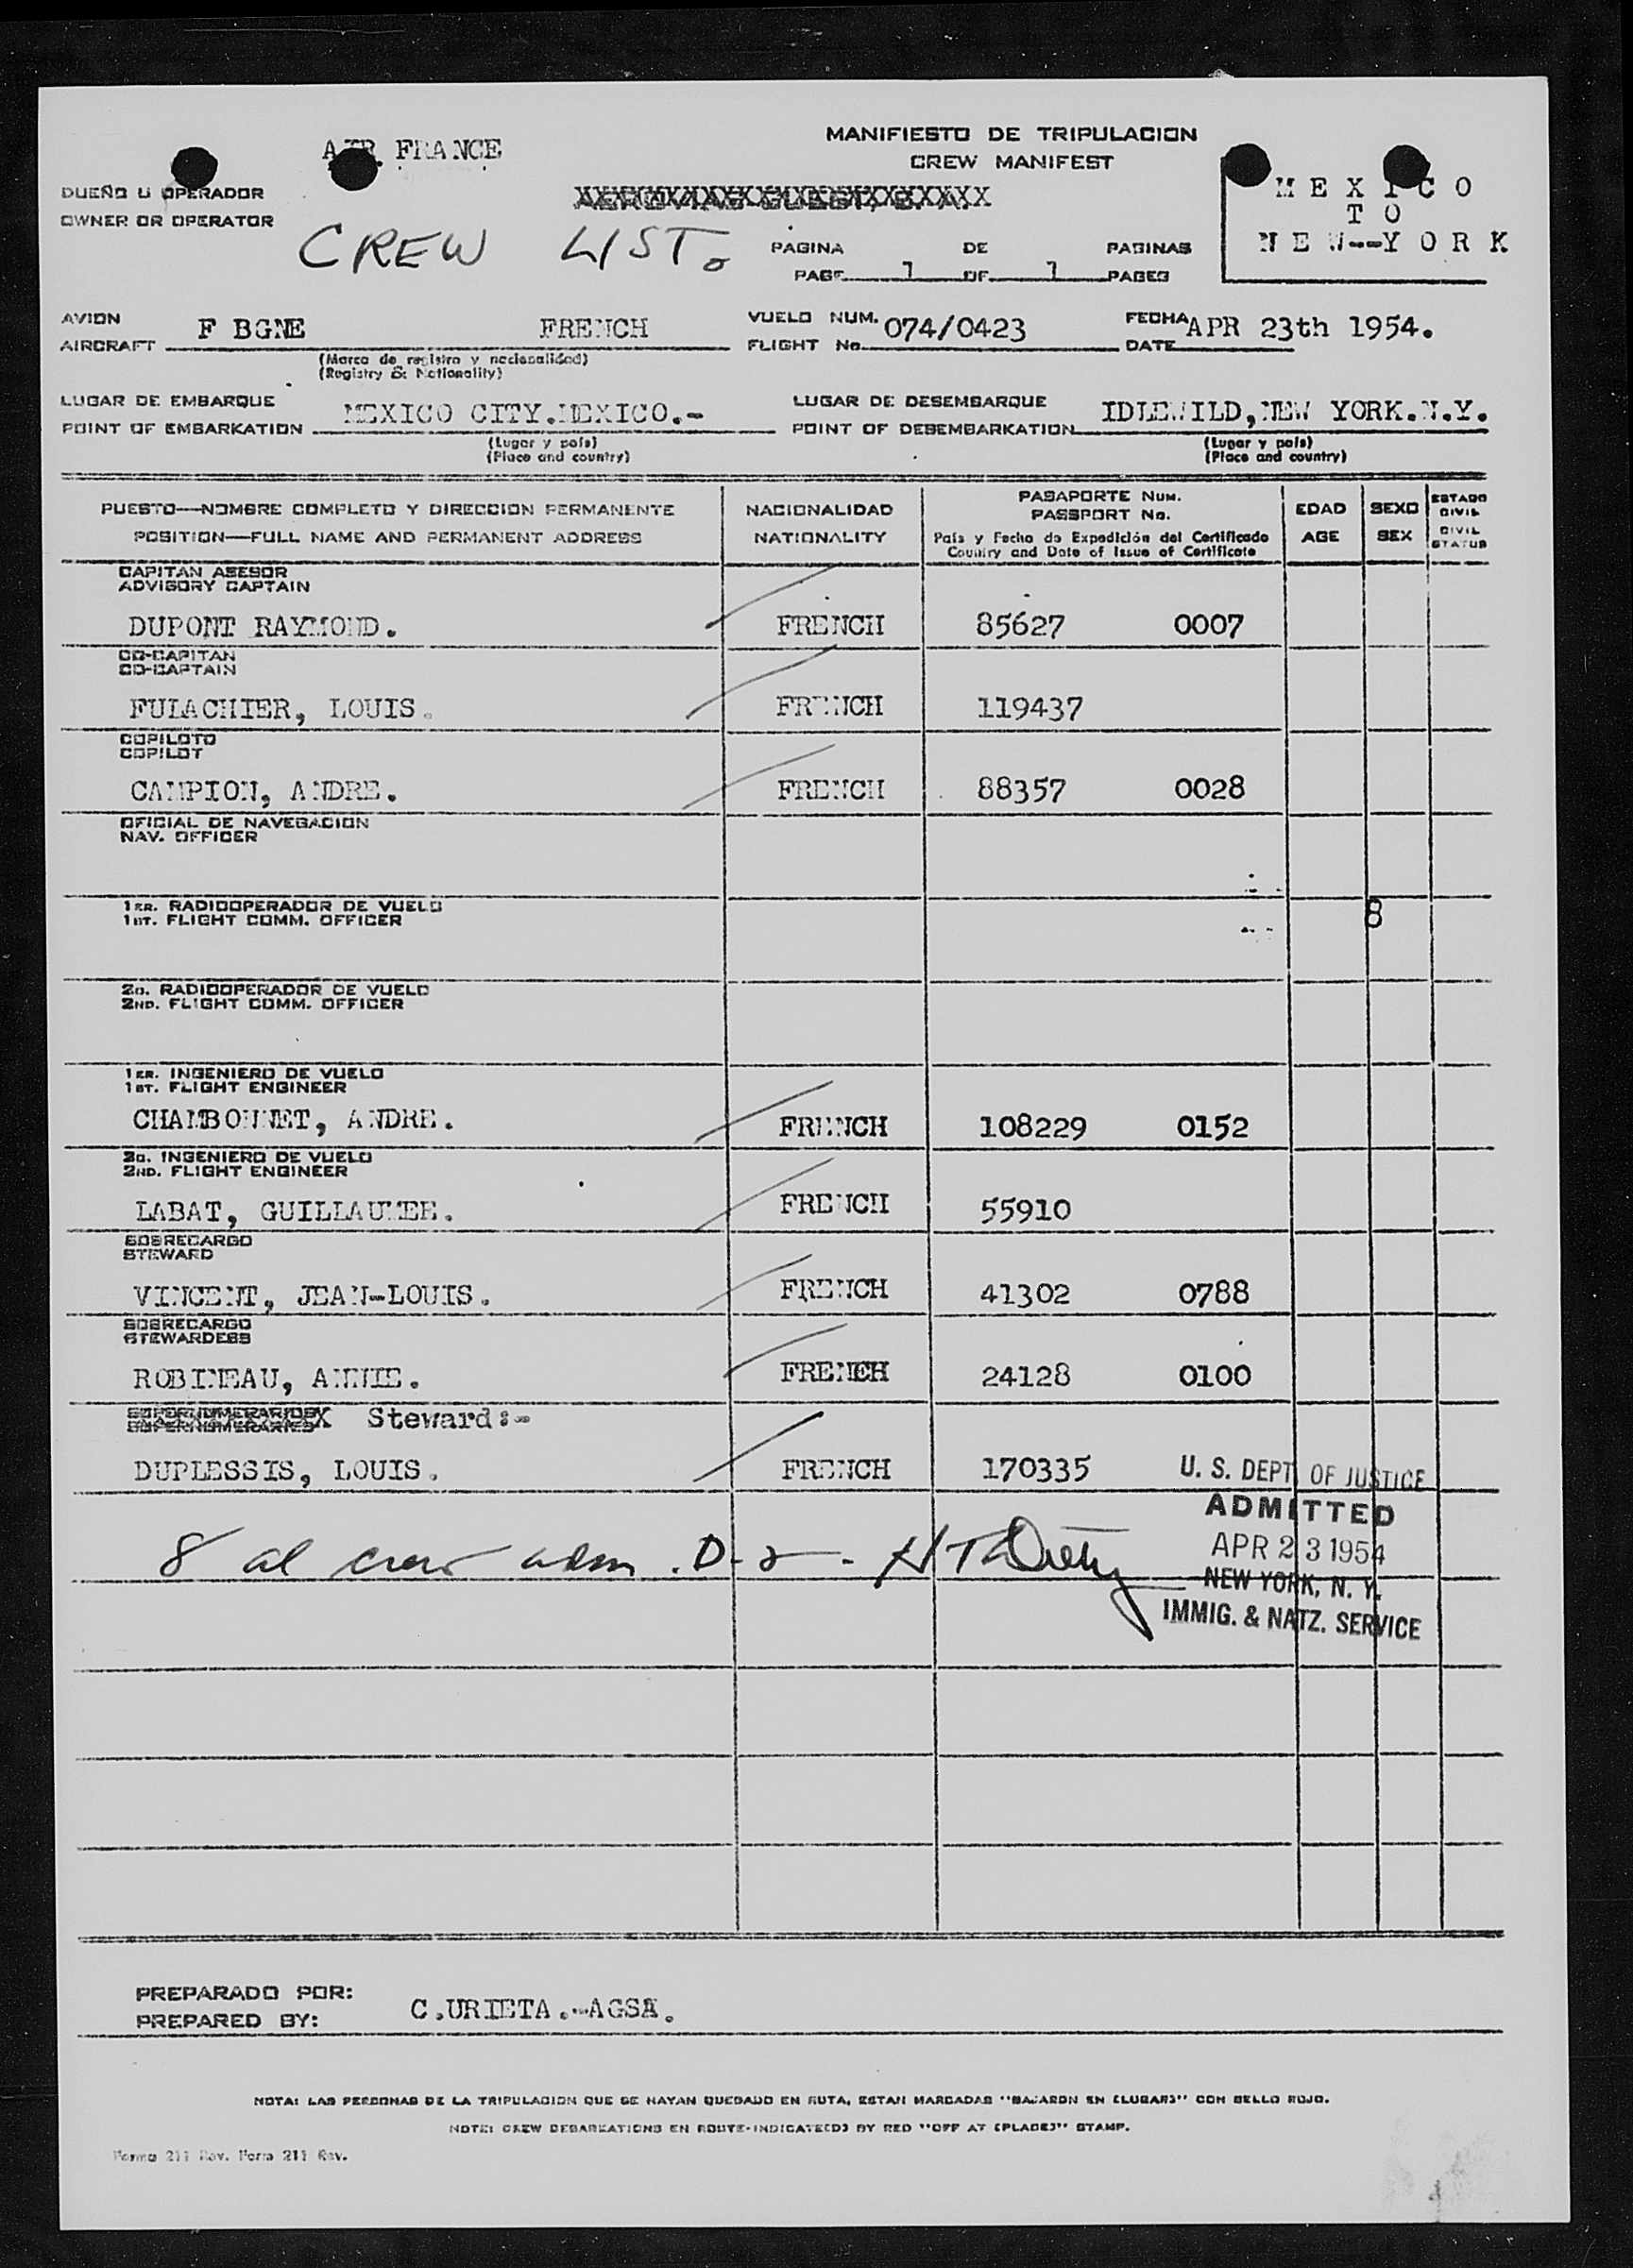 MANIFIESTO DE TRIPULACION
CREW MANIFEST
AIR FRANCE
DUEÑO U OPERADOR
OWNER OR OPERATOR
MEXICO
TO
NEW--YORK
CREW LIST.
PAGINA DE PAGINAS
PAGE 1 OF 1 PAGES
AVION
AIRCRAFT F BGNE FRENCH
(Marca de registro y nacionalidad)
(Registry & Nationality)
VUELO NUM. 074/0423
FLIGHT No.
FECHA APR 23th 1954.
DATE
LUGAR DE EMBARQUE
POINT OF EMBARKATION MEXICO CITY.MEXICO.-
(Lugar y país)
(Place and country)
LUGAR DE DESEMBARQUE
POINT OF DESEMBARKATION IDLEWILD,NEW YORK.N.Y.
(Lugar y país)
(Place and country)
PUESTO—NOMBRE COMPLETO Y DIRECCION PERMANENTE
POSITION—FULL NAME AND PERMANENT ADDRESS
NACIONALIDAD
NATIONALITY
PASAPORTE NUM.
PASSPORT No.
País y Fecha de Expedición del Certificado
Country and Date of Issue of Certificate
EDAD
AGE
SEXO
SEX
ESTADO CIVIL
CIVIL STATUS
CAPITAN ASESOR
ADVISORY CAPTAIN
DUPONT RAYMOND. FRENCH 85627 0007
CO-CAPITAN
CO-CAPTAIN
FULACHIER, LOUIS. FRENCH 119437
COPILOTO
COPILOT
CAMPION, ANDRE. FRENCH 88357 0028
OFICIAL DE NAVEGACION
NAV. OFFICER
1ER. RADIOOPERADOR DE VUELO
1ST. FLIGHT COMM. OFFICER
8
2O. RADIOOPERADOR DE VUELO
2ND. FLIGHT COMM. OFFICER
1ER. INGENIERO DE VUELO
1ST. FLIGHT ENGINEER
CHAMBONNET, ANDRE. FRENCH 108229 0152
2O. INGENIERO DE VUELO
2ND. FLIGHT ENGINEER
LABAT, GUILLAUMEE. FRENCH 55910
SOBRECARGO
STEWARD
VINCENT, JEAN-LOUIS. FRENCH 41302 0788
SOBRECARGO
STEWARDESS
ROBINEAU, ANNIE. FRENCH 24128 0100
SUPERNUMERARIOS
SUPERNUMERARIES Steward:-
DUPLESSIS, LOUIS. FRENCH 170335
U. S. DEPT OF JUSTICE
ADMITTED
APR 23 1954
NEW YORK, N. Y.
IMMIG. & NATZ. SERVICE
8 al crew adm. D-2-
PREPARADO POR:
PREPARED BY: C.URIETA.-AGSA.
NOTA: LAS PERSONAS DE LA TRIPULACION QUE SE HAYAN QUEDADO EN RUTA, ESTAN MARCADAS "BAJARON EN (LUGAR)" CON SELLO ROJO.
NOTE: CREW DEBARKATIONS EN ROUTE-INDICATE(D) BY RED "OFF AT (PLACE)" STAMP.
Forma 211 Rev. Form 211 Rev.